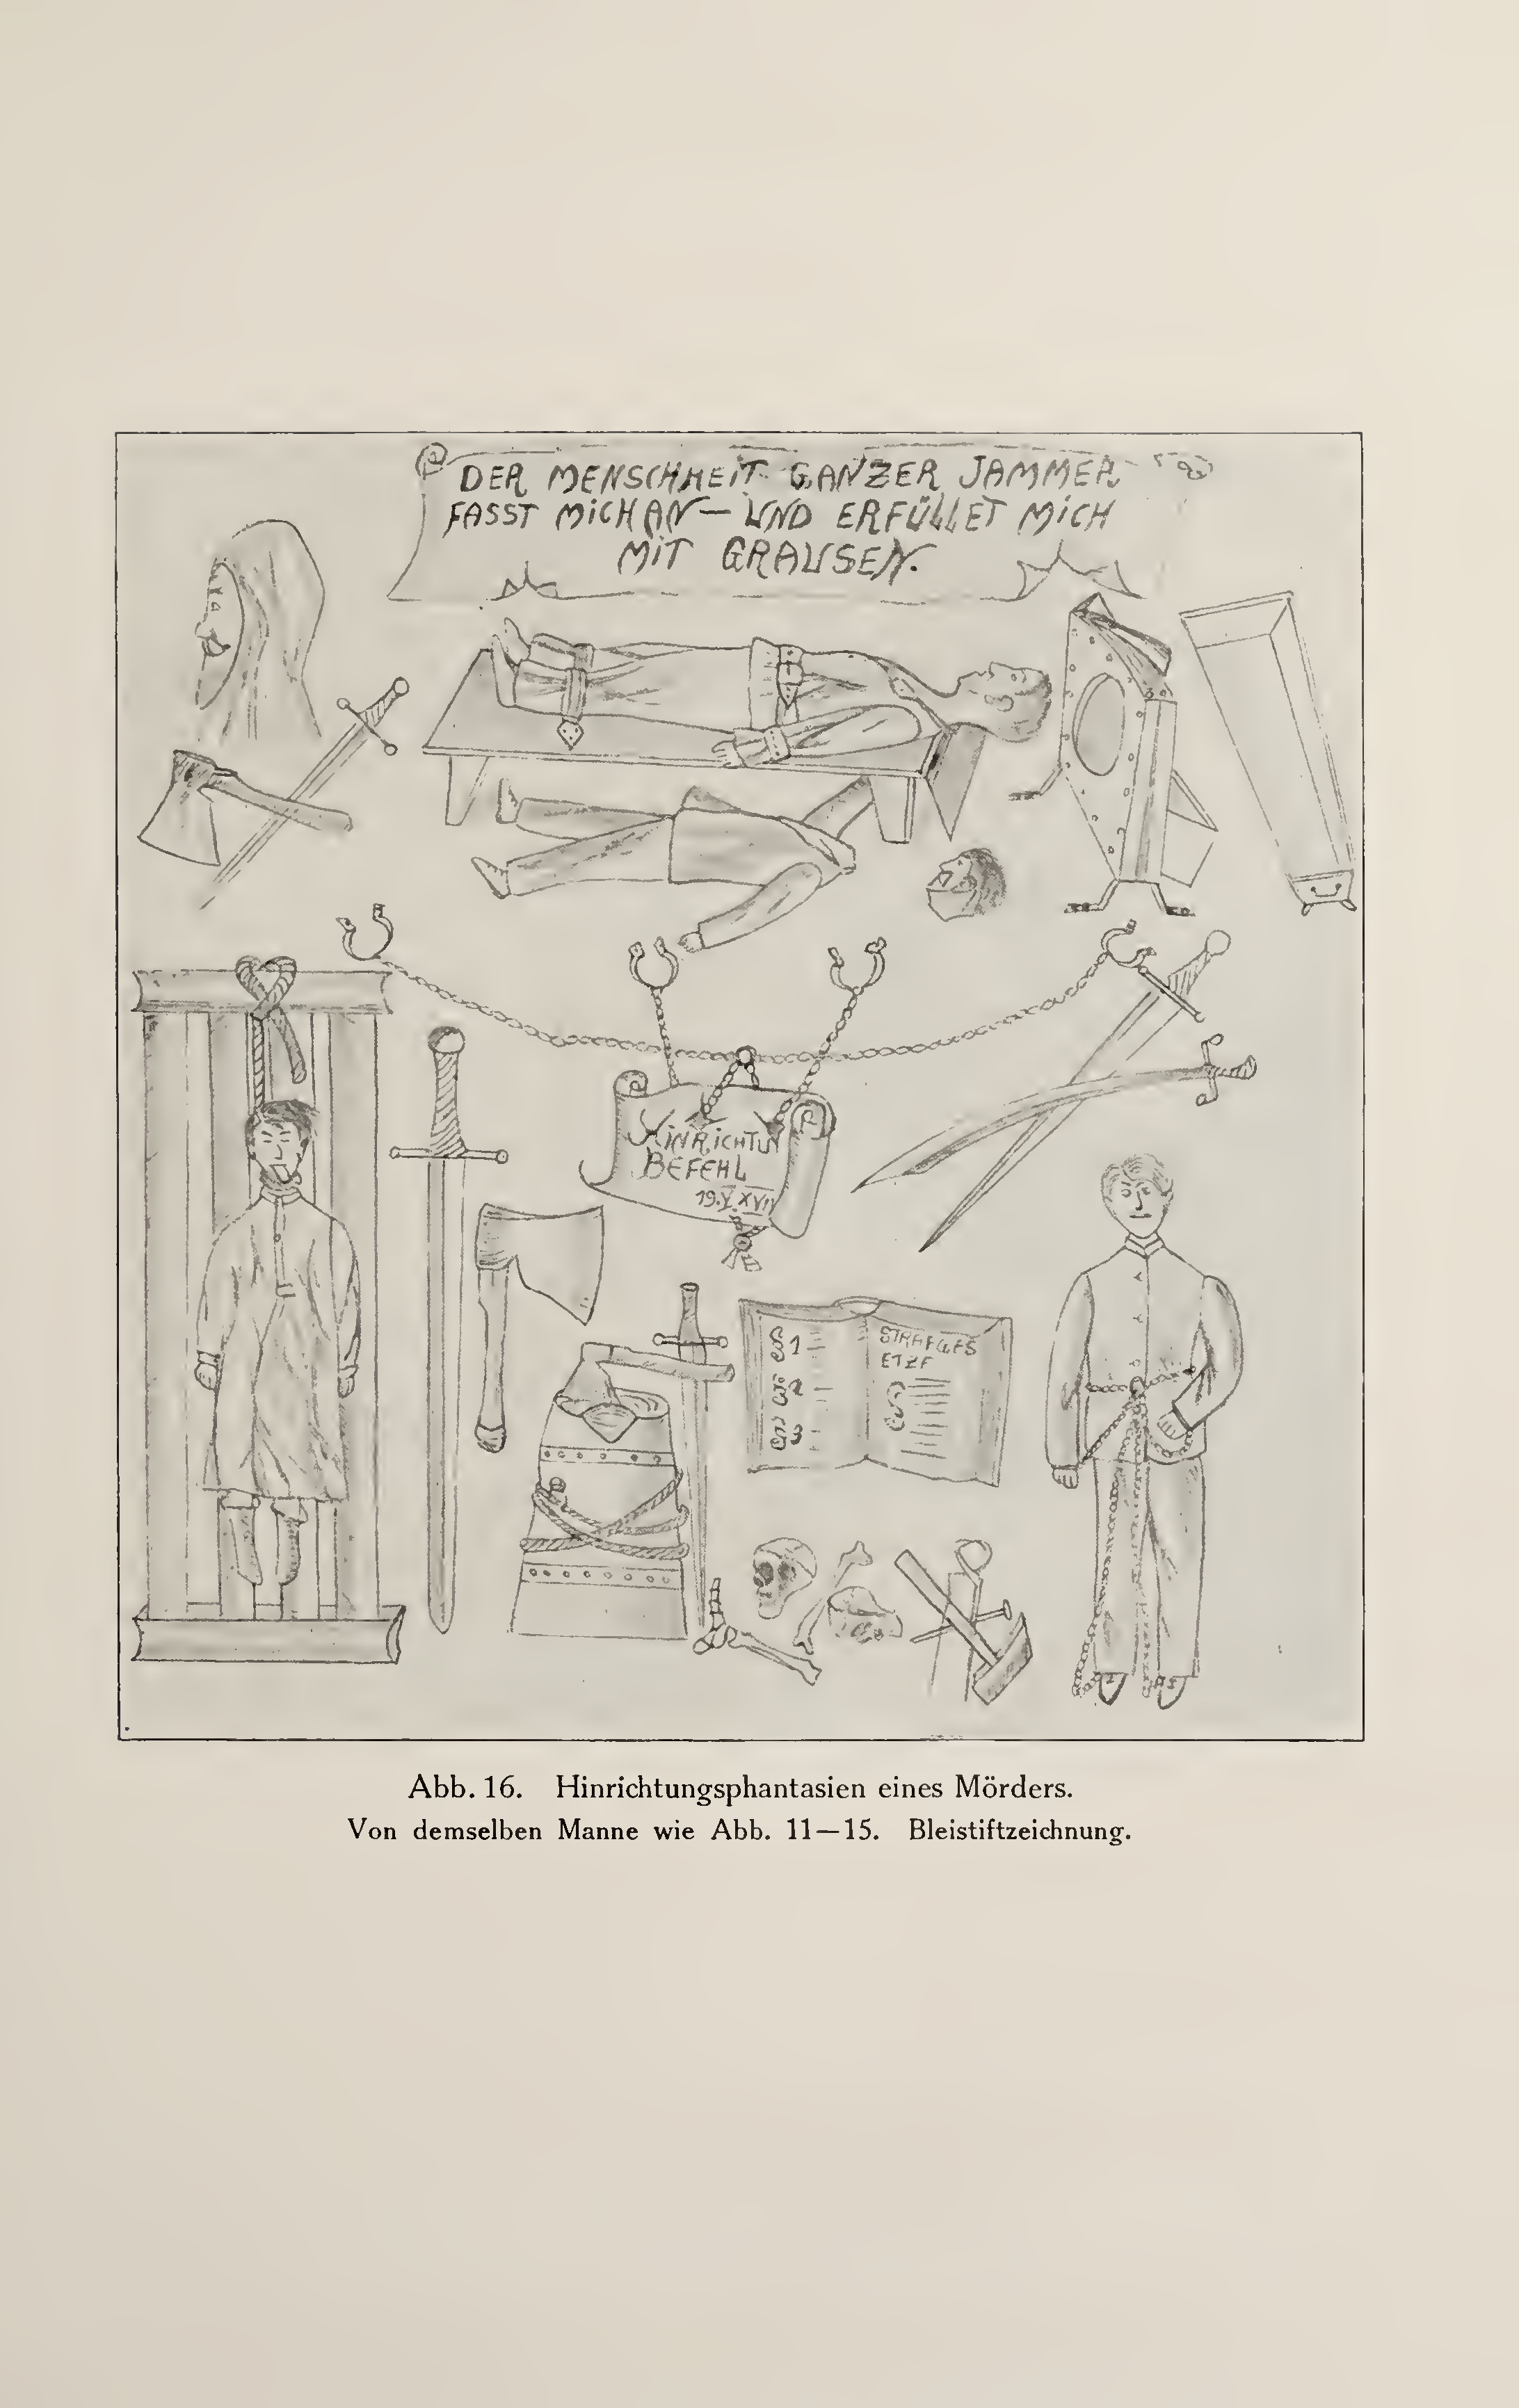 DER MENSCHHEIT GANZER JAMMER
FASST MICH AN — UND ERFÜLLET MICH
MIT GRAUSEN.
HINRICHTUN
BEFEHL
19.V.XVII
§ 1
§ 2
§ 3
STRAFGES
ETZF
§
Abb. 16. Hinrichtungsphantasien eines Mörders.
Von demselben Manne wie Abb. 11—15. Bleistiftzeichnung.